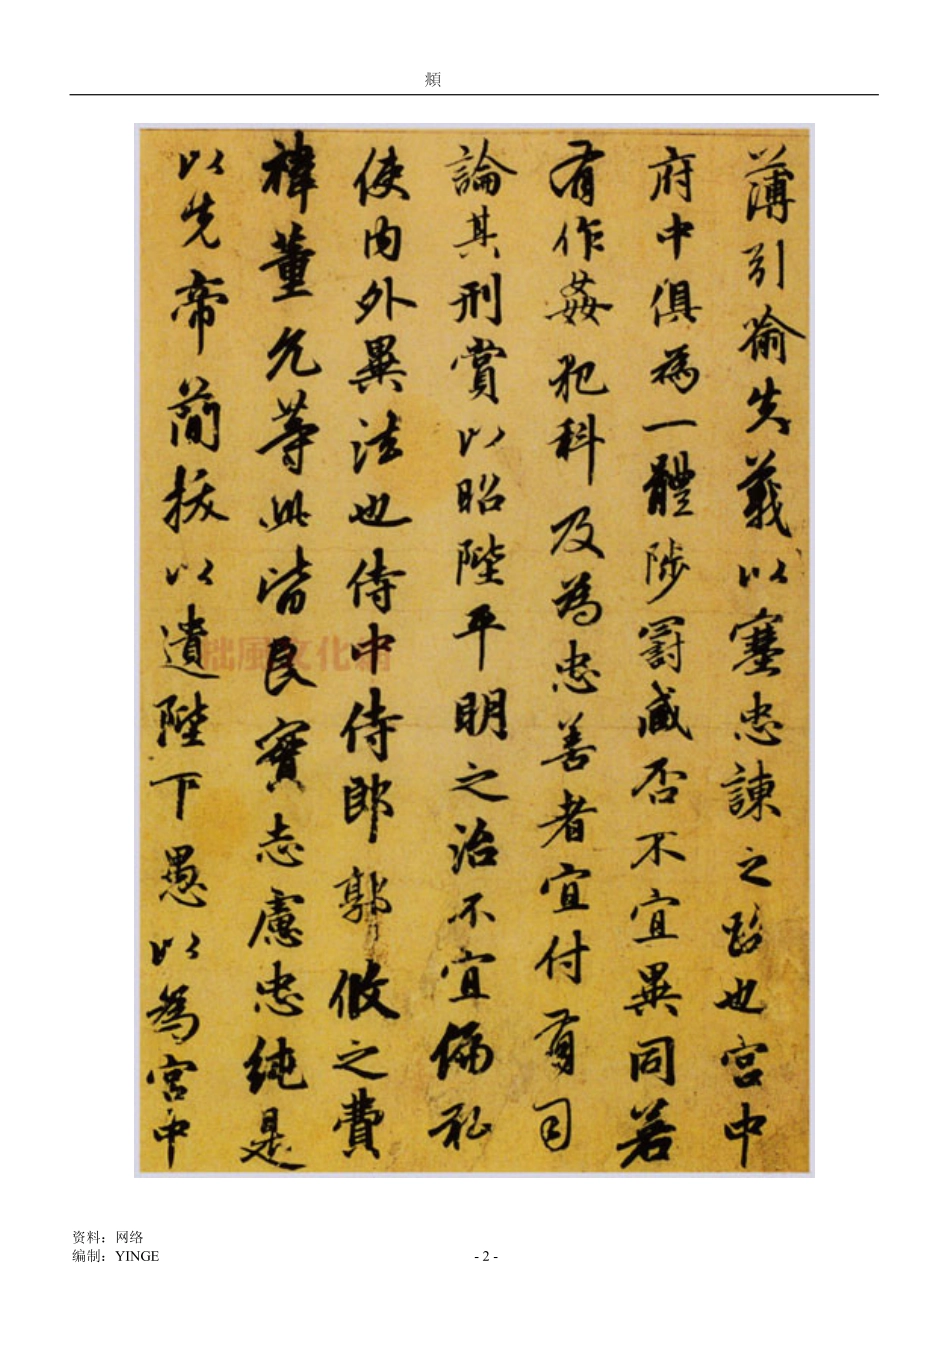 頫
薄引喻失義以塞忠諫之路也宮中
府中俱為一體陟罰臧否不宜異同若
有作姦犯科及為忠善者宜付有司
論其刑賞以昭陛平明之治不宜偏私
使内外異法也侍中侍郎郭攸之費
禕董允等此皆良實志慮忠純是
以先帝簡拔以遺陛下愚以為宮中
拙風文化網
资料：网络
编制：YINGE
- 2 -